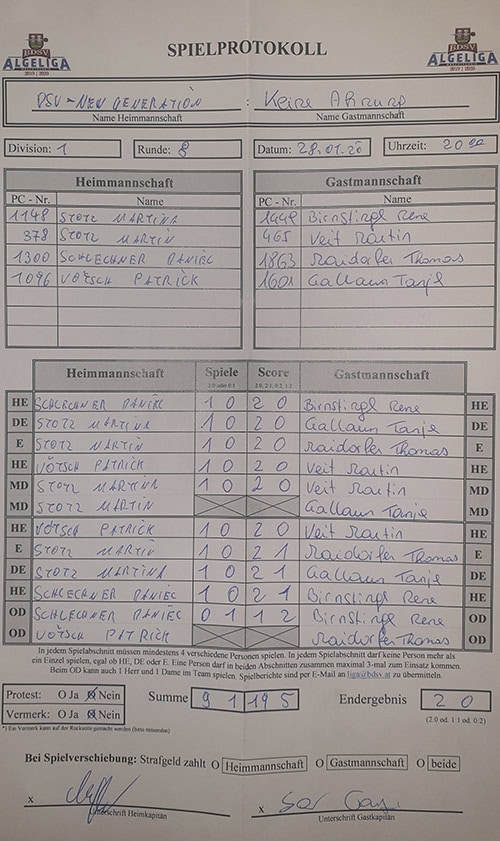 BDSV
ALGELIGA
2019 | 2020
SPIELPROTOKOLL
BDSV
ALGELIGA
2019 | 2020
DSV-NEW GENERATION : Keine Ahnung
Name Heimmannschaft Name Gastmannschaft
Division: 1 Runde: 8 Datum: 28.01.20 Uhrzeit: 20 00
Heimmannschaft Gastmannschaft
PC - Nr. Name PC - Nr. Name
1148 STOTZ MARTINA 1449 Birnstingl Rene
378 STOTZ MARTIN 465 Veit Martin
1300 SCHLECHNER DANIEL 1863 Maidorfer Thomas
1096 VÖTSCH PATRICK 1601 Gallaun Tanja
Heimmannschaft Spiele Score Gastmannschaft
1:0 oder 0:1 2:0, 2:1, 0:2, 1:2
HE SCHLECHNER DANIEL 1 0 2 0 Birnstingl Rene HE
DE STOTZ MARTINA 1 0 2 0 Gallaun Tanja DE
E STOTZ MARTIN 1 0 2 0 Maidorfer Thomas E
HE VÖTSCH PATRICK 1 0 2 0 Veit Martin HE
MD STOTZ MARTINA 1 0 2 0 Veit Martin MD
MD STOTZ MARTIN Gallaun Tanja MD
HE VÖTSCH PATRICK 1 0 2 0 Veit Martin HE
E STOTZ MARTIN 1 0 2 1 Maidorfer Thomas E
DE STOTZ MARTINA 1 0 2 1 Gallaun Tanja DE
HE SCHLECHNER DANIEL 1 0 2 1 Birnstingl Rene HE
OD SCHLECHNER DANIEL 0 1 1 2 Birnstingl Rene OD
OD VÖTSCH PATRICK Maidorfer Thomas OD
In jedem Spielabschnitt müssen mindestens 4 verschiedene Personen spielen. In jedem Spielabschnitt darf keine Person mehr als
ein Einzel spielen, egal ob HE, DE oder E. Eine Person darf in beiden Abschnitten zusammen maximal 3-mal zum Einsatz kommen.
Beim OD kann auch 1 Herr und 1 Dame im Team spielen. Spielberichte sind per E-Mail an liga@bdsv.at zu übermitteln.
Protest: O Ja O Nein Summe 9 1 19 5 Endergebnis 2 0
Vermerk: O Ja O Nein (2:0 od. 1:1 od. 0:2)
*) Ein Vermerk kann auf der Rückseite gemacht werden (bitte mitsenden)
Bei Spielverschiebung: Strafgeld zahlt O Heimmannschaft O Gastmannschaft O beide
x x
Unterschrift Heimkapitän Unterschrift Gastkapitän